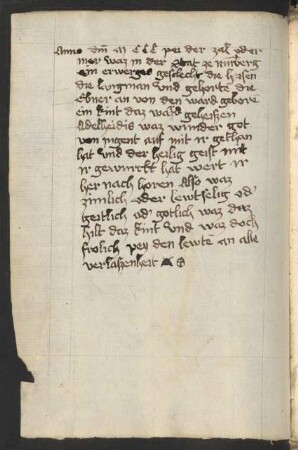 Anno dm m ccc pei der zal oder
mer waz in der stat ze nürberg
ein erwerges geschlecht die hiesen
die langman und gehorte die
Ebner an von den ward gebore
ein kint daz ward geheißen
Adelheidis waz wunder got
von jugent auf mit ir gethan
hat und der heilig geist mit
ir gewurckt hat wert ir
her nach horen Also waz
zimlich oder lewtselig od'
geitlich od' gotlich waz daz
hilt daz kint und waz doch
frolich pey den lewte an alle
verlaßenheit